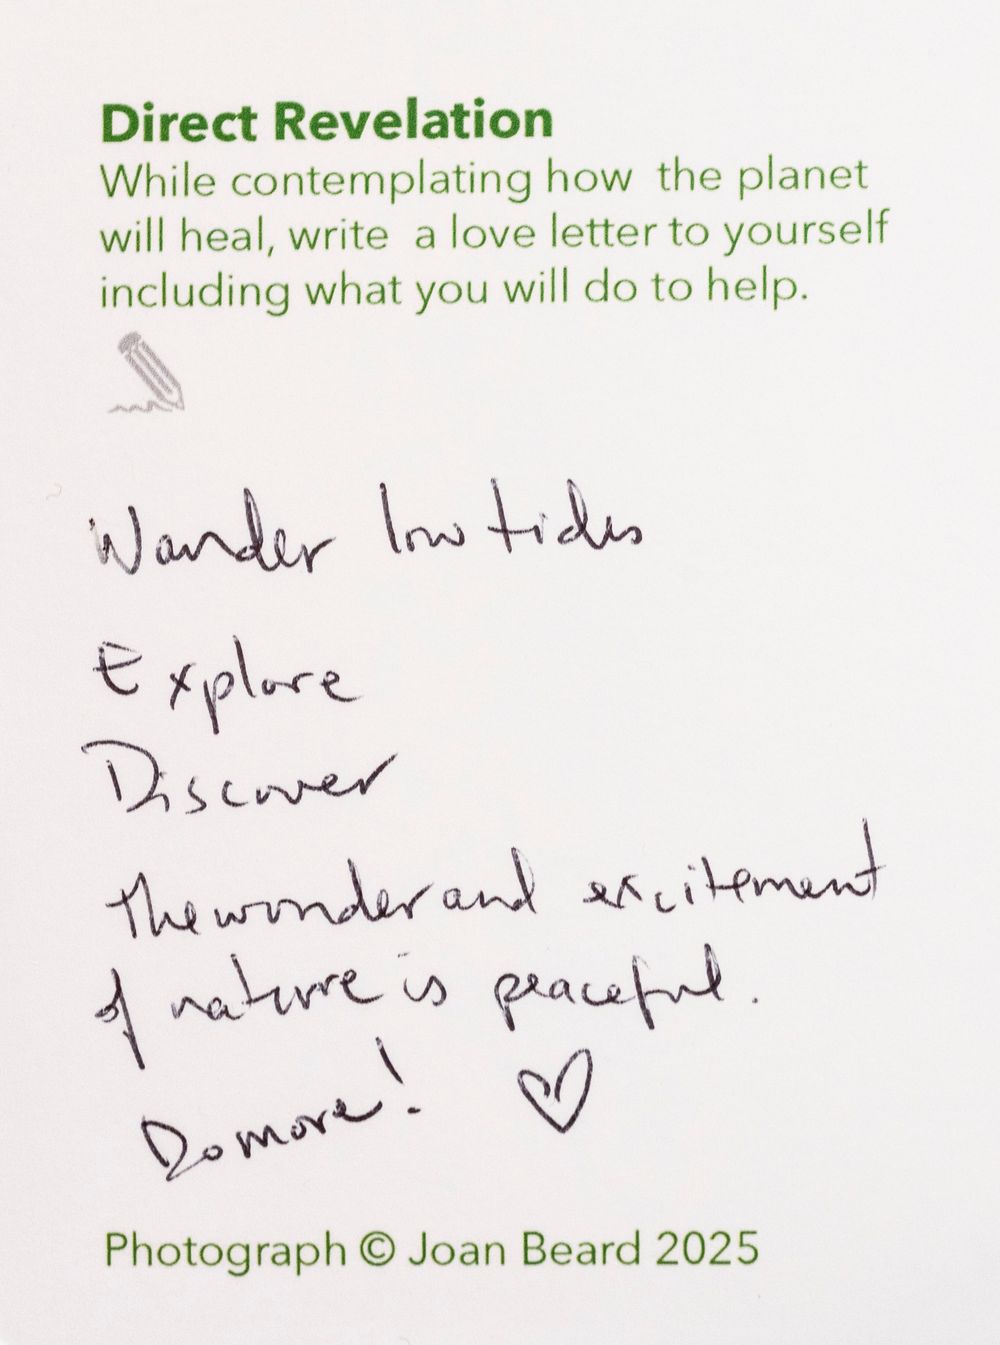 Direct Revelation
While contemplating how the planet
will heal, write a love letter to yourself
including what you will do to help.
Wander low tides
Explore
Discover
The wonder and excitement
of nature is peaceful.
Do more! ♡
Photograph © Joan Beard 2025